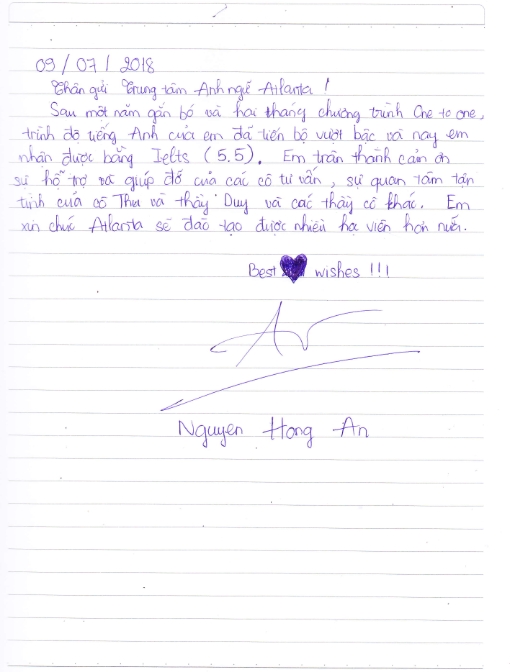 09/07/2018
Thân gửi Trung tâm Anh ngữ Atlanta!
Sau một năm gắn bó và hai tháng chương trình One to one,
trình độ tiếng Anh của em đã tiến bộ vượt bậc và nay em
nhận được bằng Ielts (5.5). Em trân thành cảm ơn
sự hỗ trợ và giúp đỡ của các cô tư vấn, sự quan tâm tận
tình của cô Thu và thầy Duy và các thầy cô khác. Em
xin chúc Atlanta sẽ đào tạo được nhiều học viên hơn nữa.
Best wishes !!!
An
Nguyen Hong An